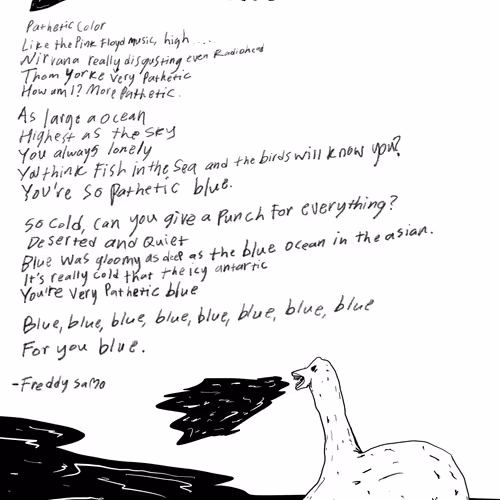 Pathetic Color
Like the Pink Floyd music, high ....
Nirvana really disgusting even Radiohead
Thom Yorke very Pathetic
How am I? More Pathetic.
As large a ocean
Highest as the sky
You always lonely
Ya think Fish in the sea and the birds will know you?
You're so pathetic blue.
So cold, can you give a Punch for everything?
Deserted and Quiet
Blue was gloomy as deep as the blue ocean in the asian.
It's really cold that the icy antartic
You're very Pathetic blue
Blue, blue, blue, blue, blue, blue, blue, blue
For you blue.
-Freddy Samo